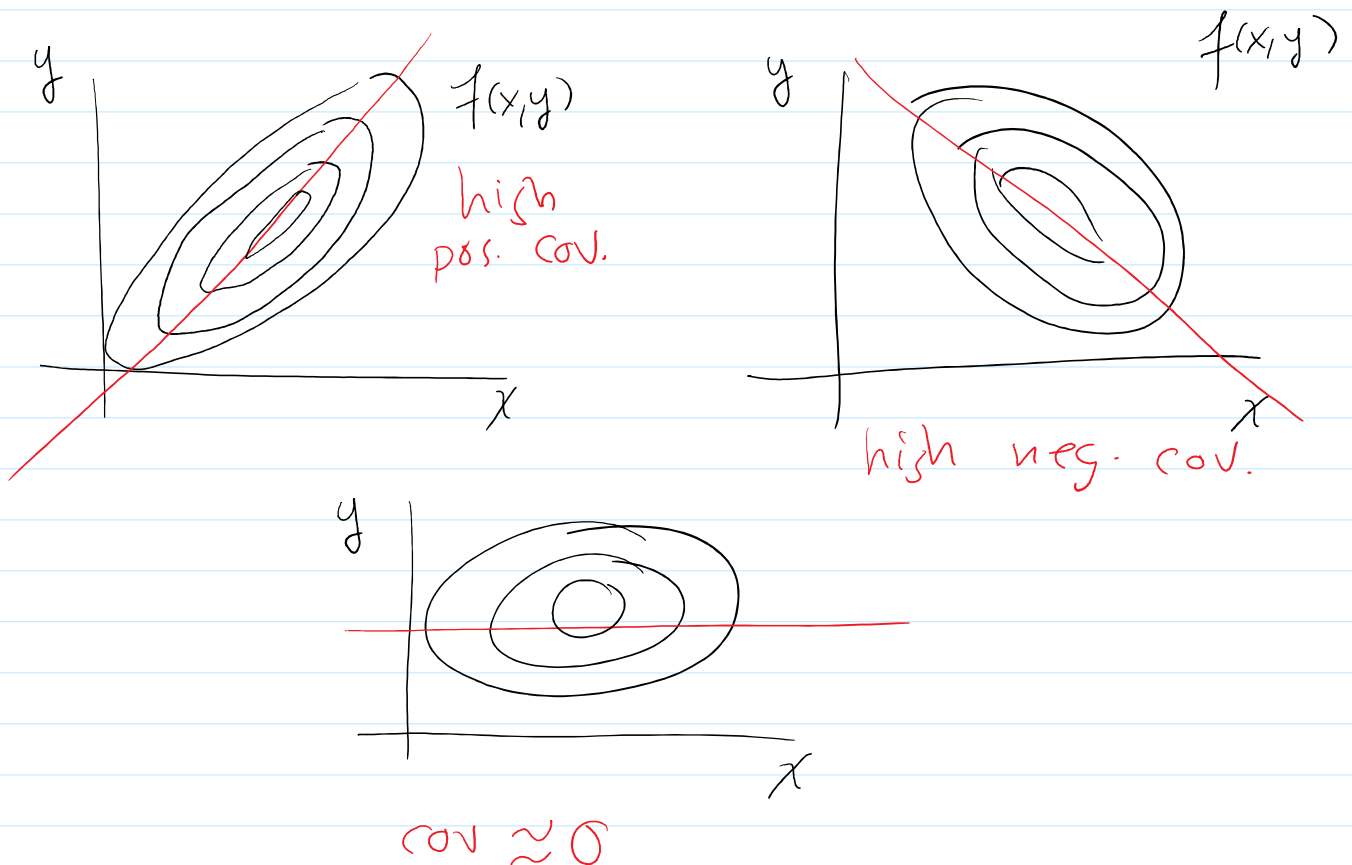 y
f(x,y)
high
pos. cov.
x
y
f(x,y)
x
high neg. cov.
y
x
cov ≈ 0